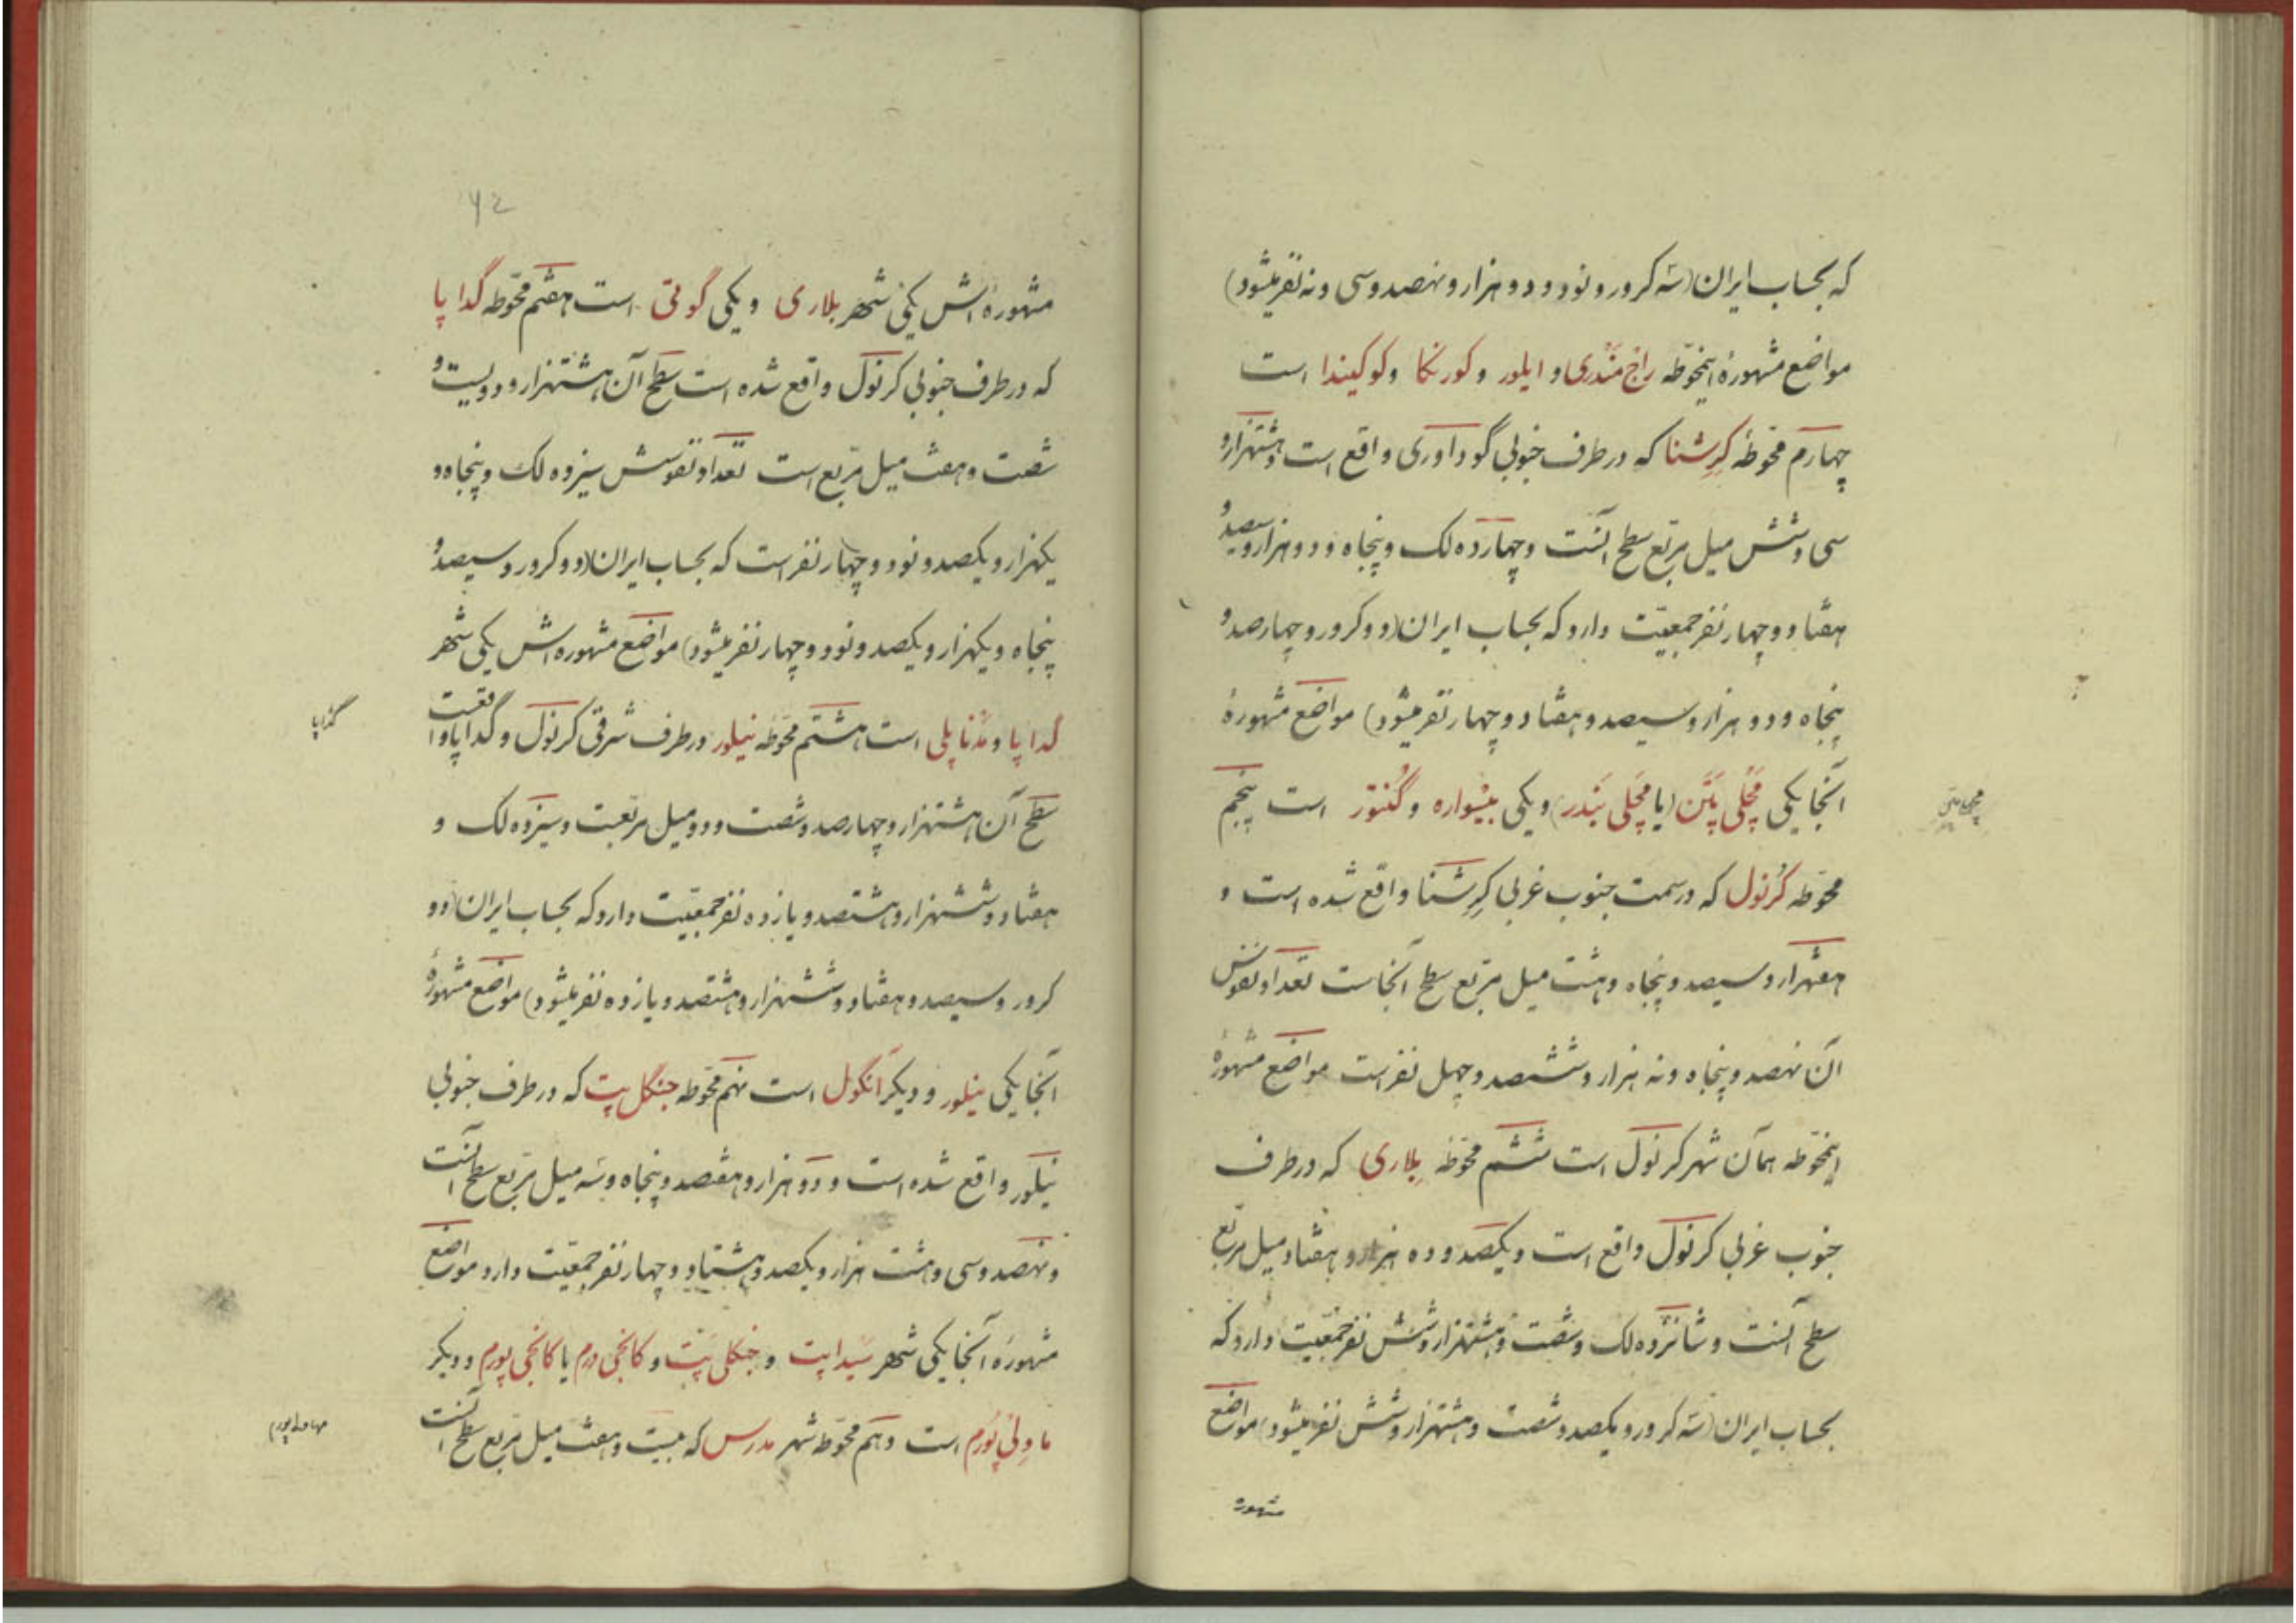 که بحساب ایران (سه کرور و نود و دو هزار و نهصد و سی و نه نفر میشود)
مواضع مشهورهٔ اینمحوّطه راج مَنْدری و ایلور و کورنکا و کوکیندا است
چهارم محوّطه کرِشنا که در طرف جنوبی گوداوری واقع است و هشتهزار و
سی و شش میل مربّع سطح آنست و چهارده لک و پنجاه و دو هزار و سیصد و
هفتاد و چهار نفر جمعیّت دارد که بحساب ایران (دو کرور و چهارصد و
پنجاه و دو هزار و سیصد و هفتاد و چهار نفر میشود) مواضع مشهورهٔ
آنجا یکی مَچْلی پَتَن (یا مَچْلی بَنْدر) و یکی بیْسواره و گُنتوْر است پنجم
محوّطه کُرنول که در سمت جنوب غربی کرِشنا واقع شده است و
هفتهزار و سیصد و پنجاه و هشت میل مربّع سطح آنجاست تعداد نفوس
آن نهصد و پنجاه و نه هزار و ششصد و چهل نفر است مواضع مشهورهٔ
اینمحوّطه همان شهر کرنول است ششم محوّطهٔ بِلاری که در طرف
جنوب غربی کرنول واقع است و یکصد و ده هزار و هفتاد میل مربّع
سطح آنست و شانزده لک و شصت و هشتهزار و شش نفر جمعیّت دارد که
بحساب ایران (سه کرور و یکصد و شصت و هشتهزار و شش نفر میشود) مواضع
مشهورهٔ
مچلی پتن
۴۲
مشهورهٔ اش یکی شهر بلاری و یکی گوتی است هفتم محوّطه گداپا
که در طرف جنوبی کرنول واقع شده است سطح آن هشتهزار و دویست و
شصت و هفت میل مربّع است تعداد نفوسش سیزده لک و پنجاه و
یکهزار و یکصد و نود و چهار نفر است که بحساب ایران (دو کرور و سیصد و
پنجاه و یکهزار و یکصد و نود و چهار نفر میشود) مواضع مشهوره اش یکی شهر
گداپا و مدناپلی است هشتم محوّطه نیلور در طرف شرقی کرنول و گداپا واقعست
سطح آن هشتهزار و چهارصد و شصت و دو میل مربّعست و سیزده لک و
هفتاد و ششهزار و هشتصد و یازده نفر جمعیّت دارد که بحساب ایران (دو
کرور و سیصد و هفتاد و ششهزار و هشتصد و یازده نفر میشود) مواضع مشهورهٔ
آنجا یکی نیلور و دیگر اَنگول است نهم محوّطه جنگل پت که در طرف جنوبی
نیلور واقع شده است و دو هزار و هفتصد و پنجاه و سه میل مربّع سطح آنست
و نهصد و سی و هشت هزار و یکصد و هشتاد و چهار نفر جمعیّت دارد مواضع
مشهورهٔ آنجا یکی شهر سَیداپت و جنگلی پَت و کانجی ورم یا کانجی پورم و دیگر
ماولْی پُورَم است دهم محوّطه شهر مدرس که بیست و هفت میل مربّع سطح آنست
گداپا